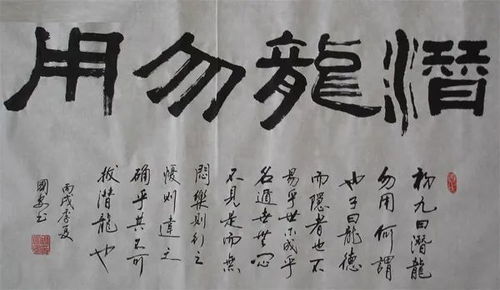 潛龍勿用
初九曰潛龍
勿用何謂
也子曰龍德
而隱者也不
易乎世不成乎
名遁世無悶
不見是而無
悶樂則行之
憂則違之
確乎其不可
拔潛龍也
丙戌季夏